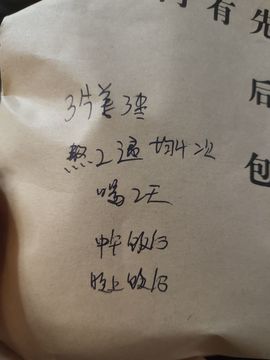 先后包
有
3片姜3枣
熬2遍 均4次
喝2天
中午饭后
晚上饭后